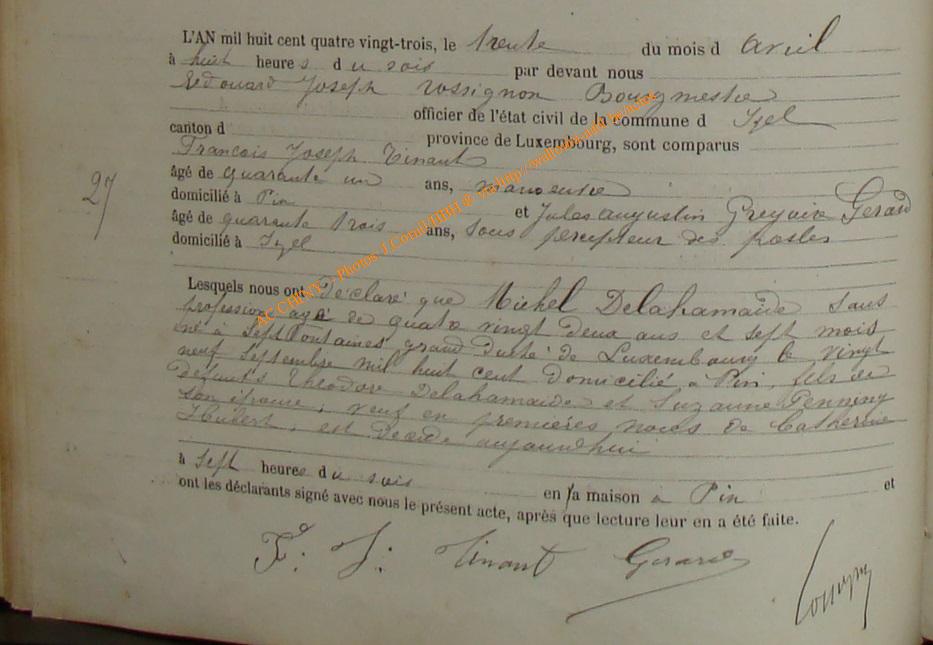 L'AN mil huit cent quatre vingt-trois, le trente du mois d avril
à huit heures du soir par devant nous
Edouard Joseph Rossignon Bourgmestre
officier de l'état civil de la commune d Izel
canton d province de Luxembourg, sont comparus
François Joseph Tinant
27
âgé de quarante un ans, manoeuvre
domicilié à Pin et Jules Augustin Grégoire Gerard
âgé de quarante trois ans, sous percepteur des postes
domicilié à Izel
Lesquels nous ont déclaré que Michel Delahamaide sans
profession agé de quatre vingt deux ans et sept mois
né à Septfontaines grand duché de Luxembourg le vingt
neuf Septembre mil huit cent domicilié à Pin, fils de
défunts Théodore Delahamaide et Suzanne Penning
son épouse, veuf en premières noces de Catherine
Hubert, est décédé aujourdhui
à sept heures du soir
en la maison à Pin et
ont les déclarants signé avec nous le présent acte, après que lecture leur en a été faite.
F. J. Tinant Gerard
ACCHINY - Photos J Cornil HBH @ sur http://wallonia-asbl.be/actes